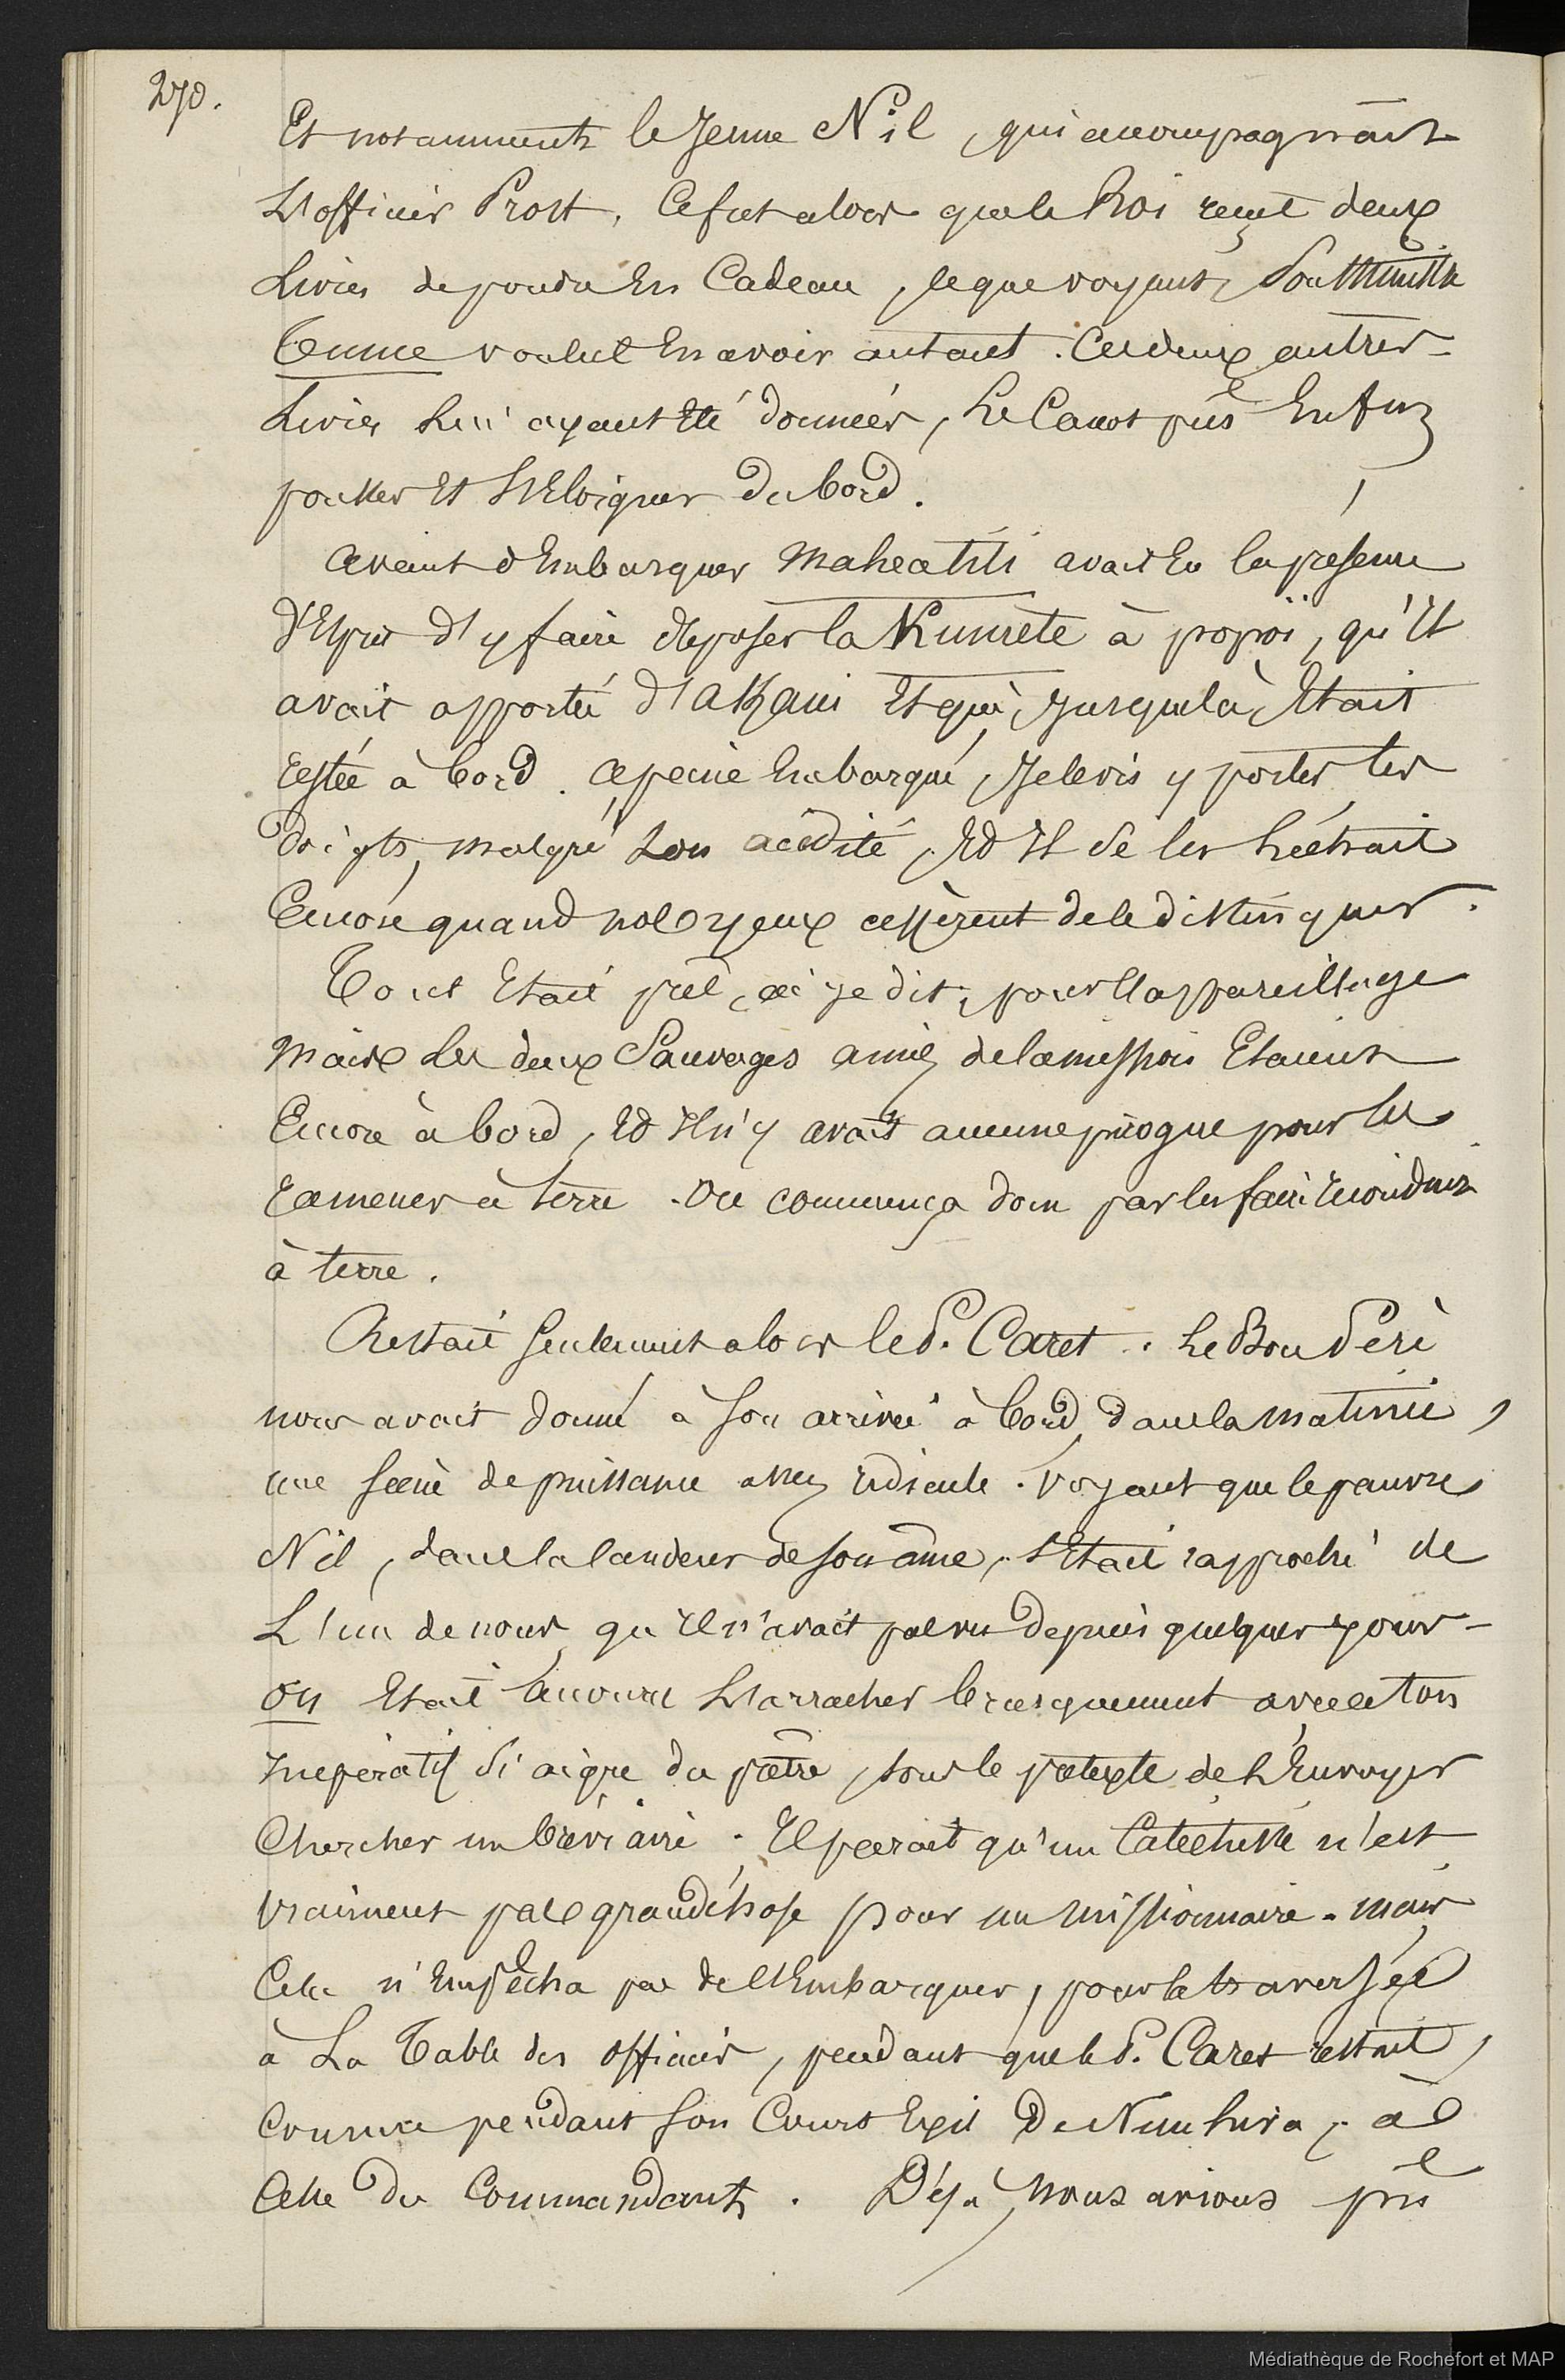 270.
Et notamment le Jeune Nil, qui accompagnait
L'officier Prost, Ce fut alors que le Roi reçut deux
Livres de poudre En Cadeau, ce que voyant, Son Ministre
voulut En avoir autant. Ces deux autres
Livres Lui ayant Eté données, Le Canot put Enfin
pousser Et S'Eloigner du bord.
avant d'Embarquer Maheatiti avait Eu la présence
d'Esprit d'y faire déposer la Kumete à popoï, qu'Il
avait apportée d'akani Et qui, Jusque là, Etait
restée à bord. a peine Embarqué, Je le vis y porter les
doigts, malgré Son acidité, Et Il Se les
Encore quand nos yeux cessèrent de le distinguer.
Tout Etait prêt, ai je dit, pour l'appareillage
Mais Les deux Sauvages amis de la mission Etaient
Encore à bord, Et Il n'y avait aucune pirogue pour les
ramener à terre. On commença donc par les faire reconduire
à terre.
Restait Seulement alors le P. Caret. Le Bon Père
nous avait donné à Son arrivée à bord, dans la matinée,
une Scène de puissance assez ridicule. Voyant que le pauvre
Nil, dans la candeur de Son âme, s'Etait rapproché de
L'un de nous, qu'Il n'avait pas vu depuis quelques jours -
on Etait accouru L'arracher brusquement avec ce ton
Impératif Si aigre du prêtre, Sous le prétexte de L'Envoyer
Chercher un bréviaire. Il parait qu'un Catéchiste n'est
vraiment pas grand'chose pour un missionnaire. mais
Cela n'Empêcha pas de l'Embarquer, pour la traversée
à La Table des officiers, pendant que le P. Caret restait,
comme pendant Son Court Exil De Nuuhiva, à
Celle du Commandant. Déjà, Nous avions pris